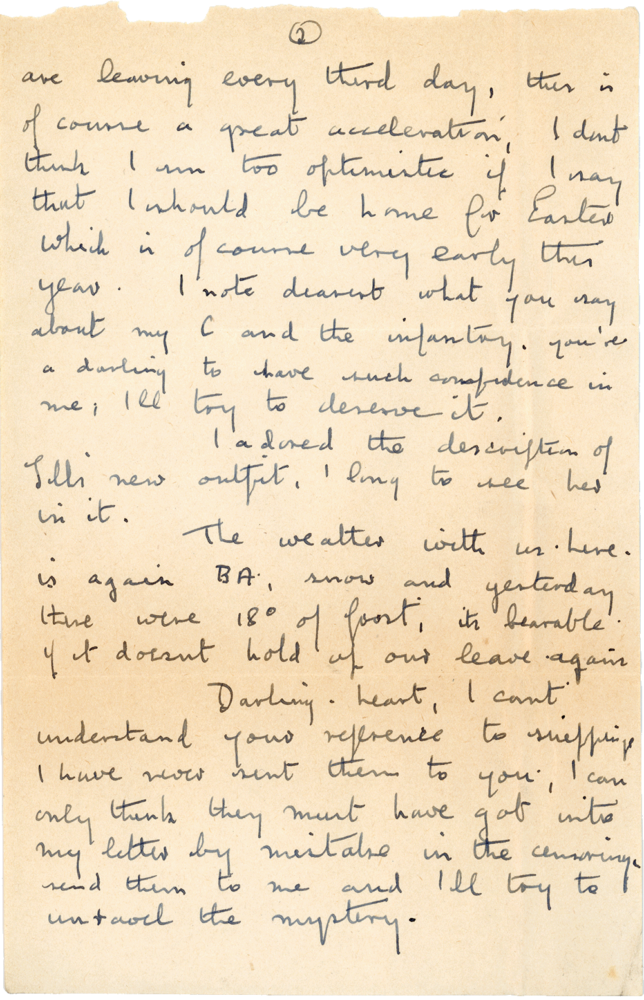 2
are leaving every third day, this is
of course a great acceleration, I dont
think I am too optimistic if I say
that I should be home for Easter
which is of course very early this
year. I note dearest what you say
about my C and the infantry. you're
a darling to have such confidence in
me, I'll try to deserve it.
I adored the description of
new outfit, I long to see her
in it.
The weather with us here.
is again BA, snow and yesterday
there were 18° of frost, its bearable
if it doesnt hold up our leave again
Darling heart, I cant
understand your reference to snippings
I have never sent them to you, I can
only think they must have got into
my letter by mistake in the censoring,
send them to me and I'll try to
unravel the mystery.